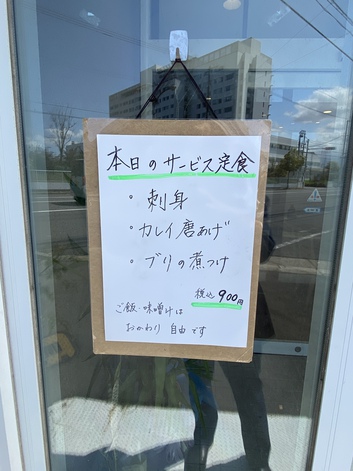 本日のサービス定食
・刺身
・カレイ唐あげ
・ブリの煮つけ
税込 900円
ご飯・味噌汁は
おかわり自由です